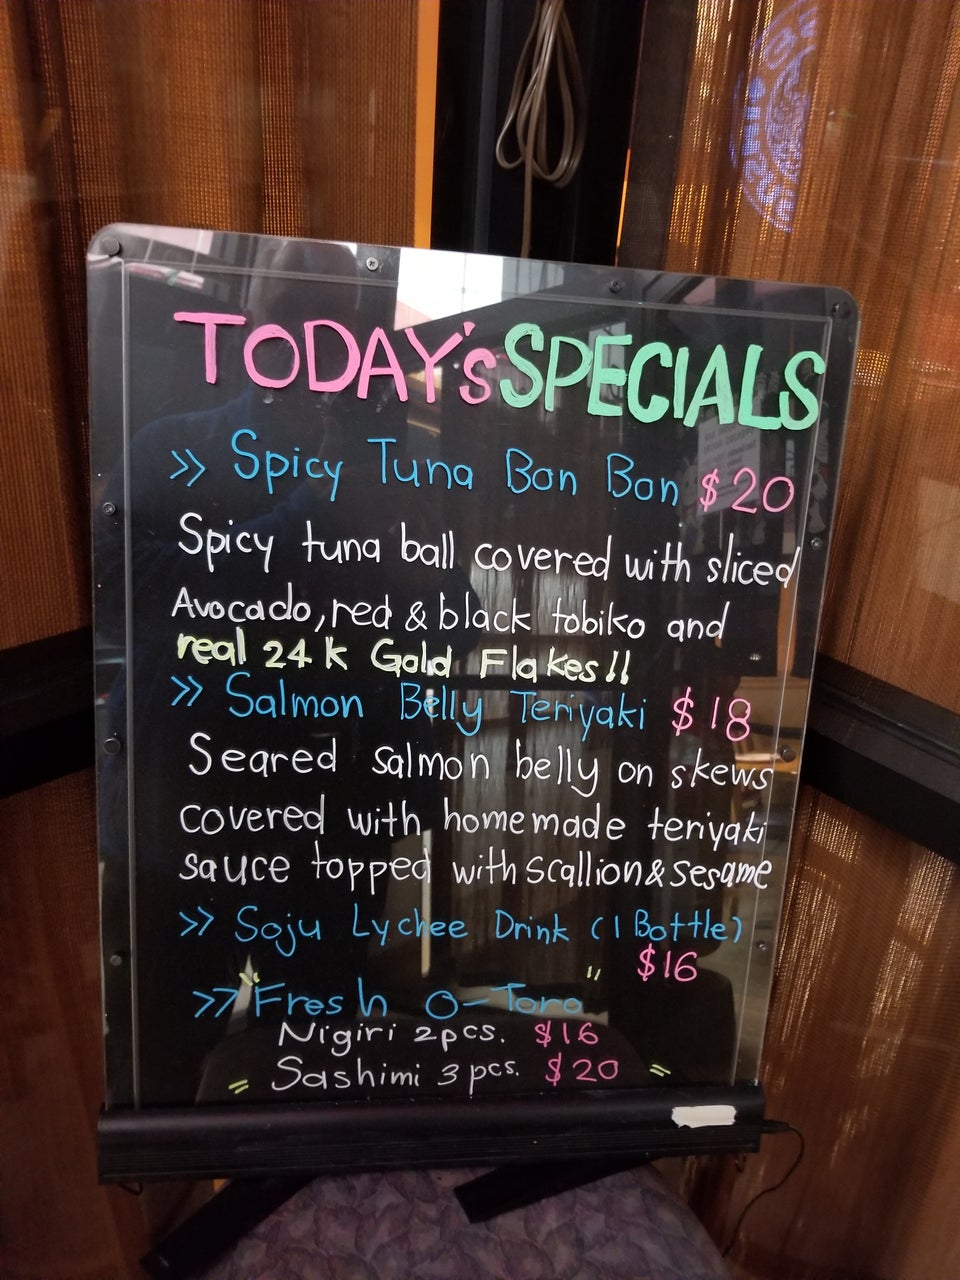 TODAY's SPECIALS
>> Spicy Tuna Bon Bon $20
Spicy tuna ball covered with sliced
Avocado, red & black tobiko and
real 24 k Gold Flakes!!
>> Salmon Belly Teriyaki $18
Seared salmon belly on skews
covered with homemade teriyaki
sauce topped with scallion & sesame
>> Soju Lychee Drink (1 Bottle)
$16
>> "Fresh O-Toro"
Nigiri 2pcs. $16
= Sashimi 3 pcs. $20 =